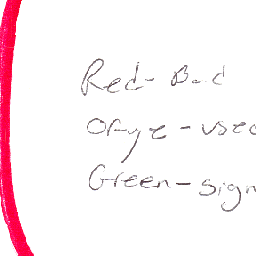 Red- Bad
Orange - used
Green - sign